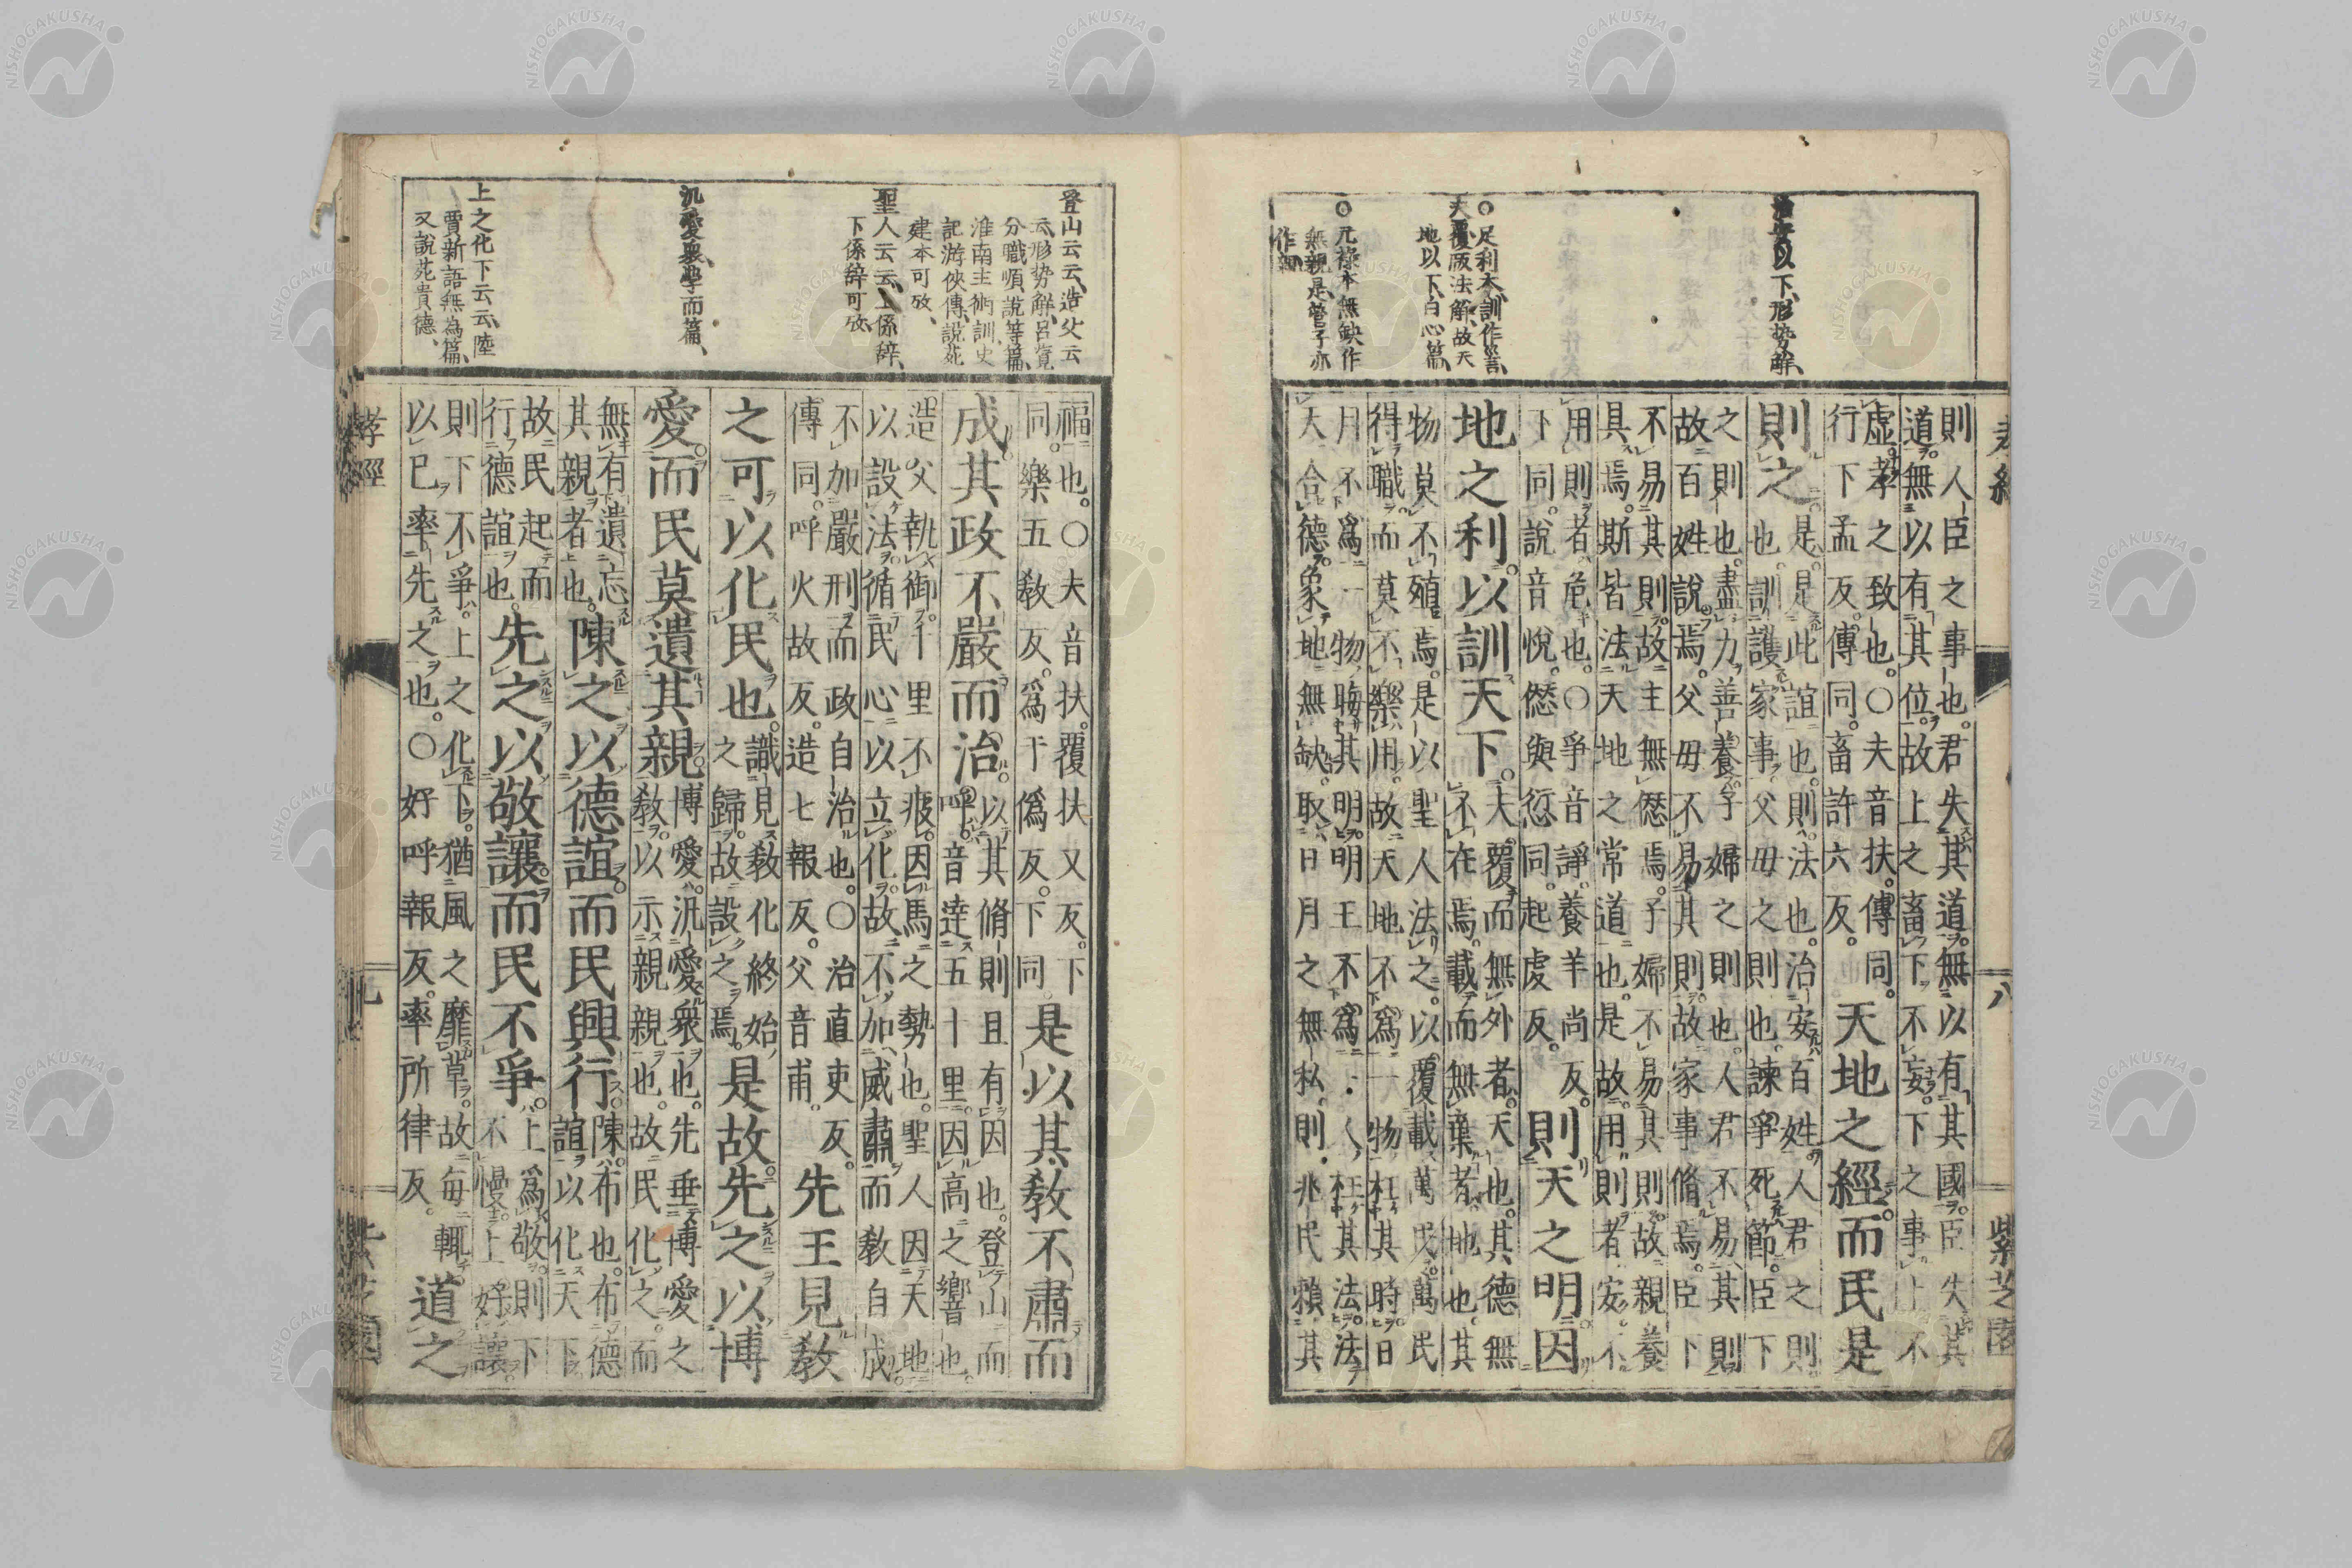 孝經
八
紫芝園
治安以下、形勢解、
○足利本訓作誓、
天覆版法解、故天
地以下、白心篇、
○元祿本無缺作
無親、是管子亦
作親
則人臣之事也。君失其道。無以有其國。臣失其
道。無以有其位。故上之畜下不妄。下之事上不
虛。孝之致也。○夫音扶。傳同。
行下孟反。傳同。畜許六反。
天地之經。而民是
則之。
是。是此誼也。則。法也。治安百姓。人君之則。
也。訓護家事。父母之則也。諫爭死節。臣下
之則也。盡力善養。子婦之則也。人君不易其則。
故百姓說焉。父母不易其則。故家事脩焉。臣下
不易其則。故主無愆焉。子婦不易其則。故親養
具焉。斯皆法天地之常道也。是故用則者安。不
用則者危也。○爭音諍。養羊尚反。
下同。說音悅。愆與同。起虔反。
則天之明。因
地之利。以訓天下。
夫覆而無外者。天也。其德無
不在焉。載而無棄者。地也。其
物莫不殖焉。是以聖人法之。以覆載萬民。萬民
得職。而莫不樂用。故天地不爲一物枉其時。日
月不爲一物晦其明。明王不爲一人枉其法。法
天合德。象地無缺。取日月之無私。則兆民賴其
登山云云、造父云
云、形勢解、呂覽
分職順說等篇、
淮南主術訓、史
記游俠傳、說苑
建本可攷、
聖人云云、上係辭、
下係辭可攷、
汎愛衆、學而篇、
上之化下云云、陸
賈新語無爲篇、
又說苑貴德、
福也。○夫音扶。覆扶又反。下
同。樂五敎反。爲于僞反。下同。
是以其敎不肅而
成。其政不嚴而治。
以其脩則且有因也。登山而
呼。音達五十里。因高之響也。
造父執御。千里不疲。因馬之勢也。聖人因天地
以設法。循民心以立化。故不加威肅而敎自成。
不加嚴刑而政自治也。○治直吏反。
傳同。呼火故反。造七報反。父音甫。
先王見敎
之可以化民也。
識見敎化終始
之歸。故設之焉。
是故先之以博
愛。而民莫遺其親。
博愛。汎愛衆也。先垂博愛之
敎。以示親親也。故民化之。而
無有遺忘
其親者也。
陳之以德誼。而民興行。
陳。布也。布德
誼以化天下。
故民起而
行德誼也。
先之以敬讓。而民不爭。
上爲敬。則下
不慢。上好讓。
則下不爭。上之化下。猶風之靡草。故每輒
以已率先之也。○好呼報反。率所律反。
道之
孝經
九
紫芝園